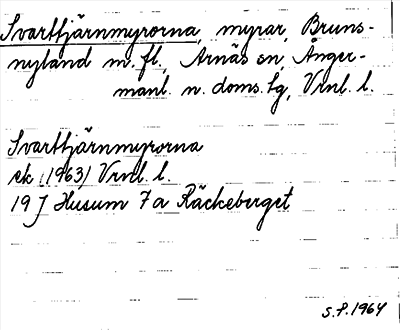 Svarttjärnmyrorna, myrar, Bruns-
nyland m. fl., Arnäs sn, Ånger-
manl. n. doms. lg, Vrnl. l.
Svarttjärnmyrorna
ek (1963) Vrnl. l.
19 J Husum 7 a Räckeberget
S.P. 1964